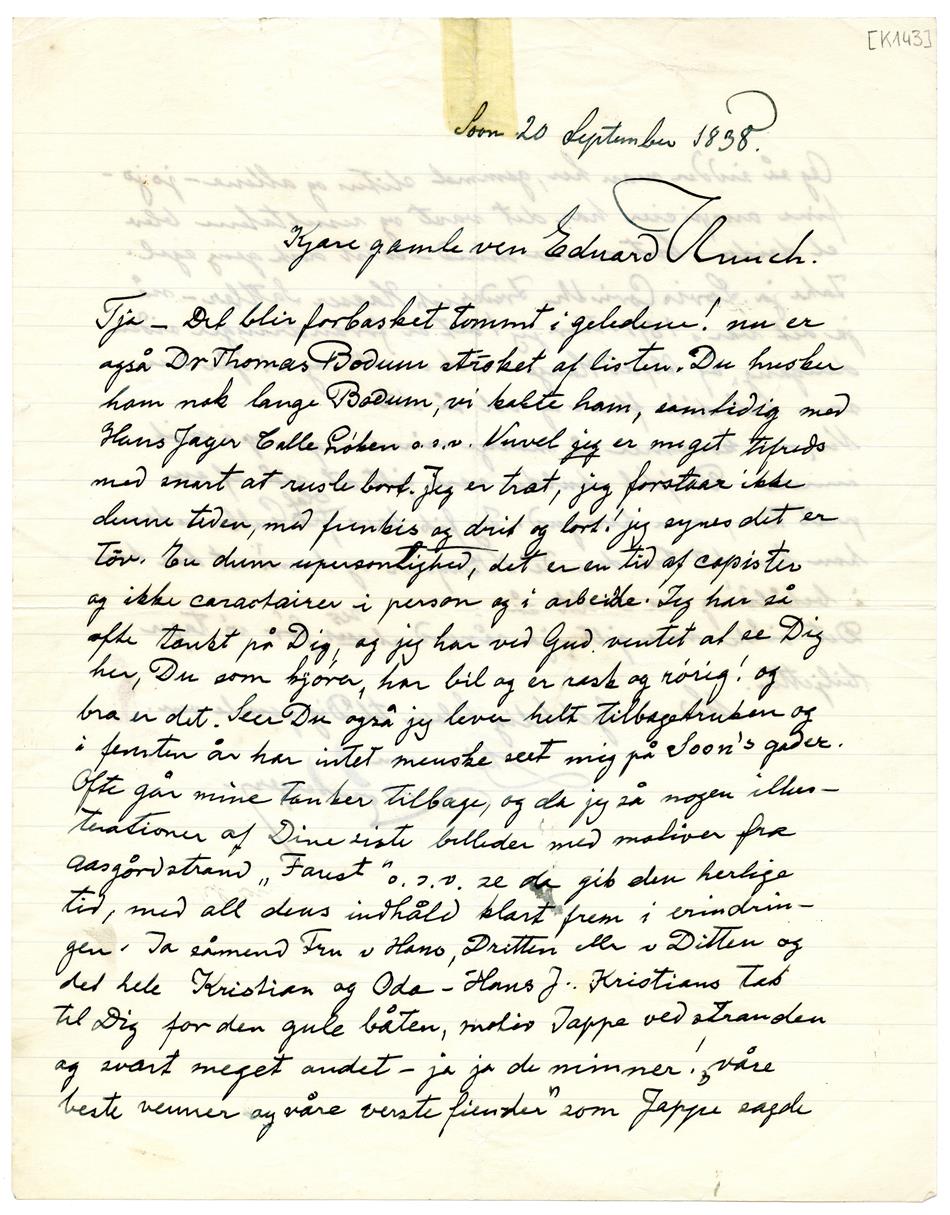 [K143]
Soon 20 September 1838.
Kjære gamle ven Edvard Munch.
Tja – Det blir forbasket tommt i geledene! nu er
også Dr Thomas Bodum strøket af listen. Du husker
ham nok lange Bodum, vi kalte ham, samtidig med
Hans Jæger Calle Løken o.s.v. Nuvel jeg er meget tilfreds
med snart at rusle bort. Jeg er træt, jeg forstaar ikke
denne tiden, med funkis og drit og lort! jeg synes det er
töv. En dum upersonlighed, det er en tid af copister
og ikke caractairer i person og i arbeide. Jeg har så
ofte tænkt på Dig, og jeg har ved Gud ventet at se Dig
her, Du som kjører, har bil og er rask og rørig! og
bra er det. Seer Du også jeg lever helt tilbagetruken og
i femten år har intet menske seet mig på Soon's gader.
Ofte går mine tanker tilbage, og da jeg så nogen illus-
terationer af Dine siste billeder med motiver fra
Aasgårdstrand „Faust" o.s.v. se da gik den herlige
tid, med all dens indhåld klart frem i erindrin-
gen. Ja såmend Fru v Hans, Dritten v Ditten og
det hele Kristian og Oda – Hans J.. Kristians tak
til Dig for den gule båten, motiv Jappe ved stranden
og svært meget andet – ja ja de minner! „våre
beste venner og våre verste fiender" som Jappe sagde